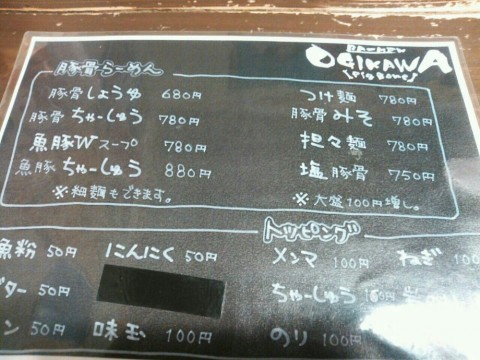 RAーMEN
OGIKAWA
[Pig Bone]
豚骨らーめん
豚骨しょうゆ 680円
豚骨ちゃーしゅう 780円
魚豚Wスープ 780円
魚豚ちゃーしゅう 880円
※細麺もできます。
つけ麺 780円
豚骨みそ 780円
担々麺 780円
塩豚骨 750円
※大盛100円増し。
トッピング
魚粉 50円 にんにく 50円 メンマ 100円 ねぎ 100円
ター 50円 ちゃーしゅう
ン 50円 味玉 100円 のり 100円